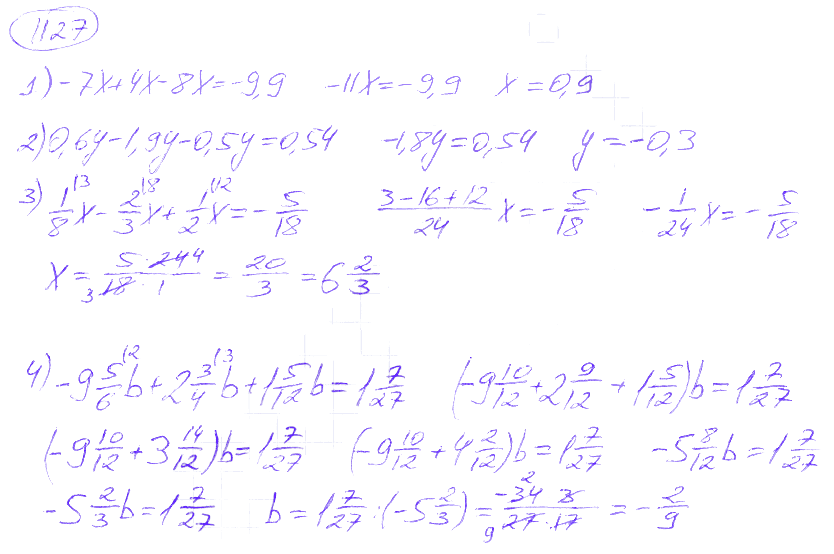 1127
1) -7x+4x-8x=-9,9    -11x=-9,9    x=0,9
2) 0,6y-1,9y-0,5y=0,54    -1,8y=0,54    y=-0,3
3) 1/8^(3 x - 2/3^(8 x + 1/2^(12 x = -5/18    (3-16+12)/24 x = -5/18    -1/24 x = -5/18
x = (5·24 4)/(3 18·1) = 20/3 = 6 2/3
4) -9 5/6^(2 b + 2 3/4^(3 b + 1 5/12 b = 1 7/27    (-9 10/12 + 2 9/12 + 1 5/12)b = 1 7/27
(-9 10/12 + 3 14/12)b = 1 7/27    (-9 10/12 + 4 2/12)b = 1 7/27    -5 8/12 b = 1 7/27
-5 2/3 b = 1 7/27    b = 1 7/27 : (-5 2/3) = (-34 2 · 3)/(9 27·17) = -2/9